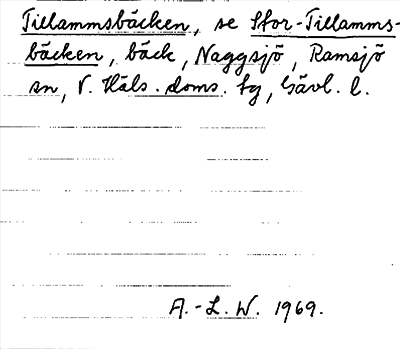 Tillammsbäcken, se Stor-Tillamms-
bäcken, bäck, Naggsjö, Ramsjö
sn, V. Häls. doms. tg, Gävl. l.
A.-L. W. 1969.